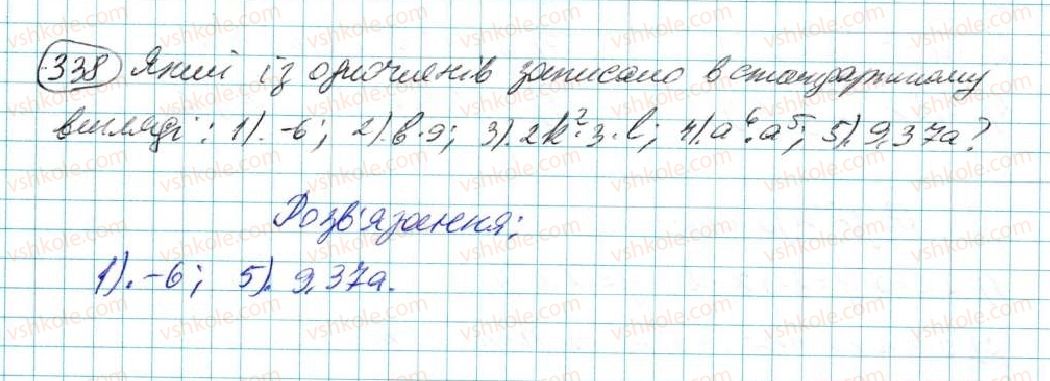 338 Який із одночленів записано в стандартному
вигляді: 1). -6; 2). b·9; 3). 2k²·3·l; 4). a⁶·a⁵; 5). 9,37a?
Розв'язання:
1). -6; 5). 9,37a.